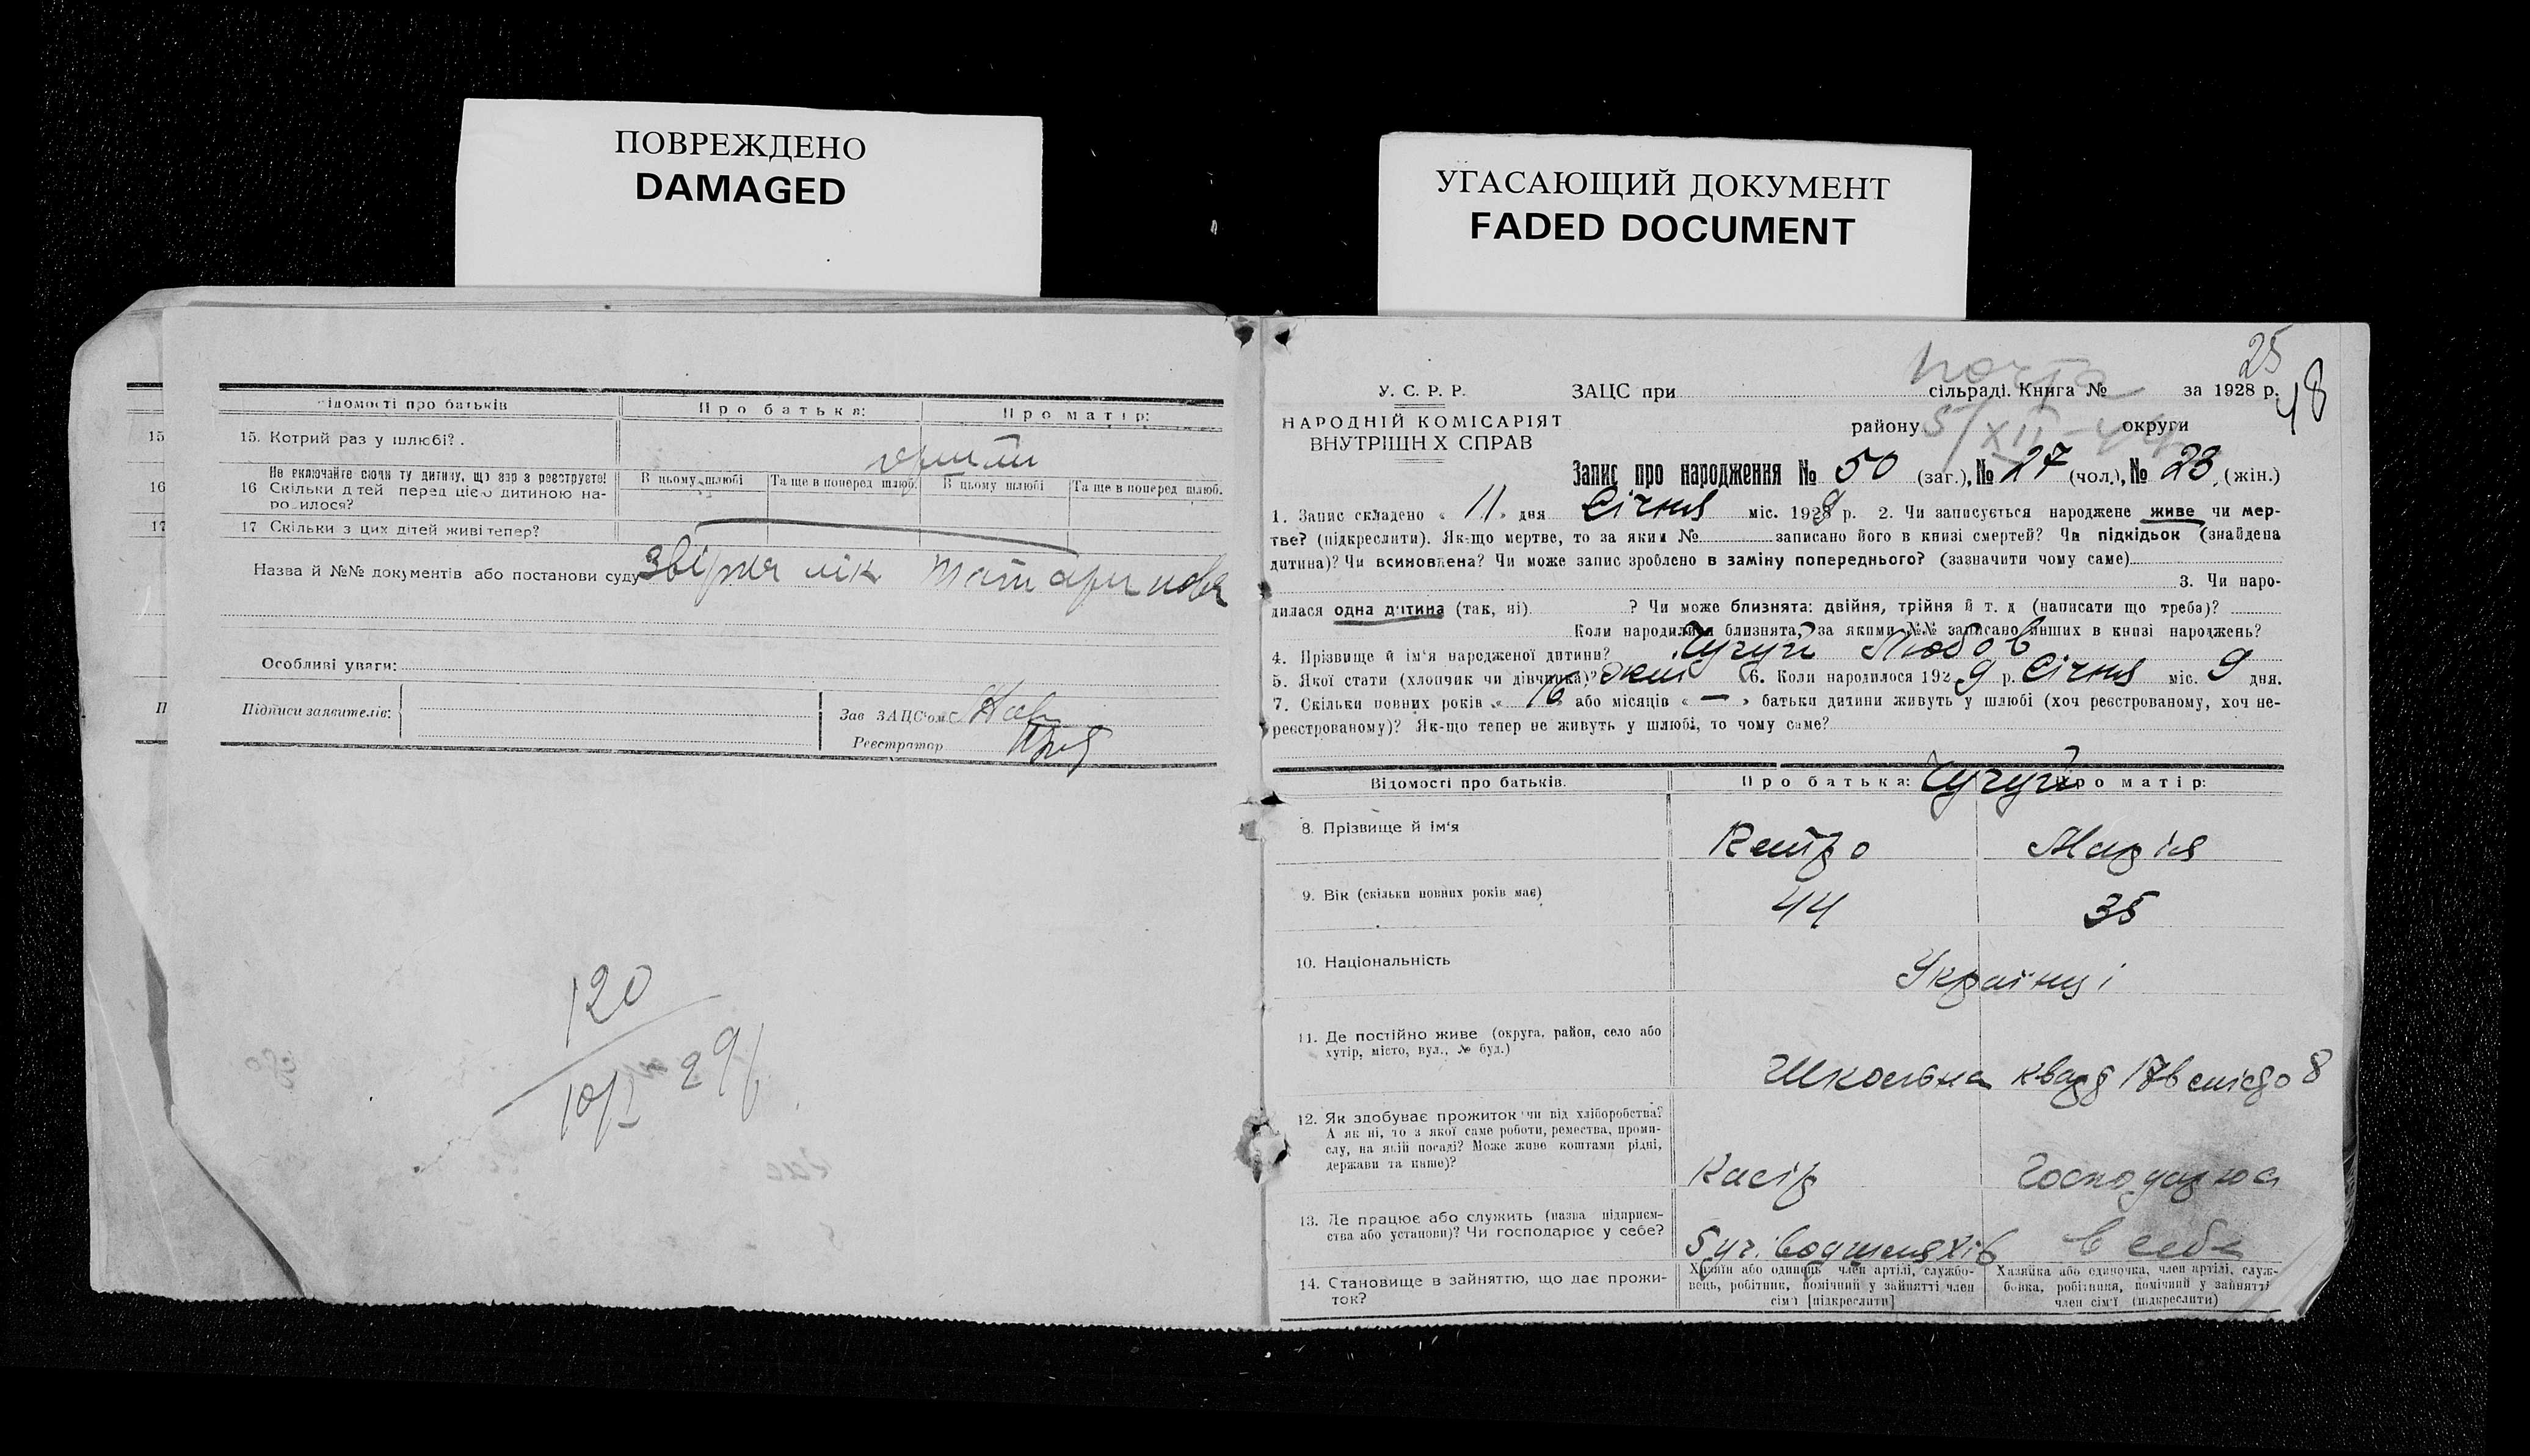 ПОВРЕЖДЕНО
DAMAGED
УГАСАЮЩИЙ ДОКУМЕНТ
FADED DOCUMENT
15
16
17
П
ідомості про батьків
Про батька:
Про матір:
15. Котрий раз у шлюбі?.
Не включайте сюди ту дитину, що зараз реєструєте!
16 Скільки дітей перед цією дитиною на-
родилося?
В цьому шлюбі
Та ще в поперед шлюб.
В цьому шлюбі
Та ще в поперед шлюб.
17 Скільки з цих дітей живі тепер?
Назва й №№ документів або постанови суду
Особливі уваги:
Підписи заявителів:
Зав ЗАЦС'ом
Реєстратор
120
10/I 29
25
48
У. С. Р. Р.
НАРОДНІЙ КОМІСАРІЯТ
ВНУТРІШН Х СПРАВ
ЗАЦС при сільраді. Книга № за 1928 р.
почта
району округи
5/XII
Запис про народження № 50 (заг.), № 27 (чол.), № 23 (жін.)
1. Запис складено « 11 » дня Січня міс. 1929 р. 2. Чи записується народжене живе чи мер-
тве? (підкреслити). Як-що мертве, то за яким № записано його в книзі смертей? Чи підкідьок (знайдена
дитина)? Чи всиновлена? Чи може запис зроблено в заміну попереднього? (зазначити чому саме)
3. Чи наро-
дилася одна дитина (так, ні) ? Чи може близнята: двійня, трійня й т. д (написати що треба)?
Коли народилися близнята, за якими №№ записано инших в книзі народжень?
4. Прізвище й ім'я народженої дитини? Чугуй Любов
5. Якої стати (хлопчик чи дівчинка)? жін 6. Коли народилося 1929 р. Січня міс. 9 дня.
7. Скільки повних років « 16 або місяців « — » батьки дитини живуть у шлюбі (хоч реєстрованому, хоч не-
реєстрованому)? Як-що тепер не живуть у шлюбі, то чому саме?
Відомості про батьків.
Про батька:
Чугуй
Про матір:
8. Прізвище й ім'я
Петро
Марія
9. Вік (скільки повних років має)
44
35
10. Національність
Українці
11. Де постійно живе (округа, район, село або
хутір, місто, вул., № буд.)
Школьна квар 8
12. Як здобуває прожиток чи від хліборобства?
А як ні, то з якої саме роботи, ремества, проми-
слу, на якій посаді? Може живе коштами рідні,
держави та инше)?
Касір
Господарює
13. Де працює або служить (назва підприєм-
ства або установи)? Чи господарює у себе?
5 уч. водшляхів
в себе
14. Становище в зайняттю, що дає прожи-
ток?
Хазяїн або одинець член артілі, службо-
вець, робітник, помічний у зайнятті член
сім'ї [підкреслити]
Хазяйка або одиночка, член артілі, служ-
бовка, робітниця, помічний у зайнятті
член сім'ї (підкреслити)